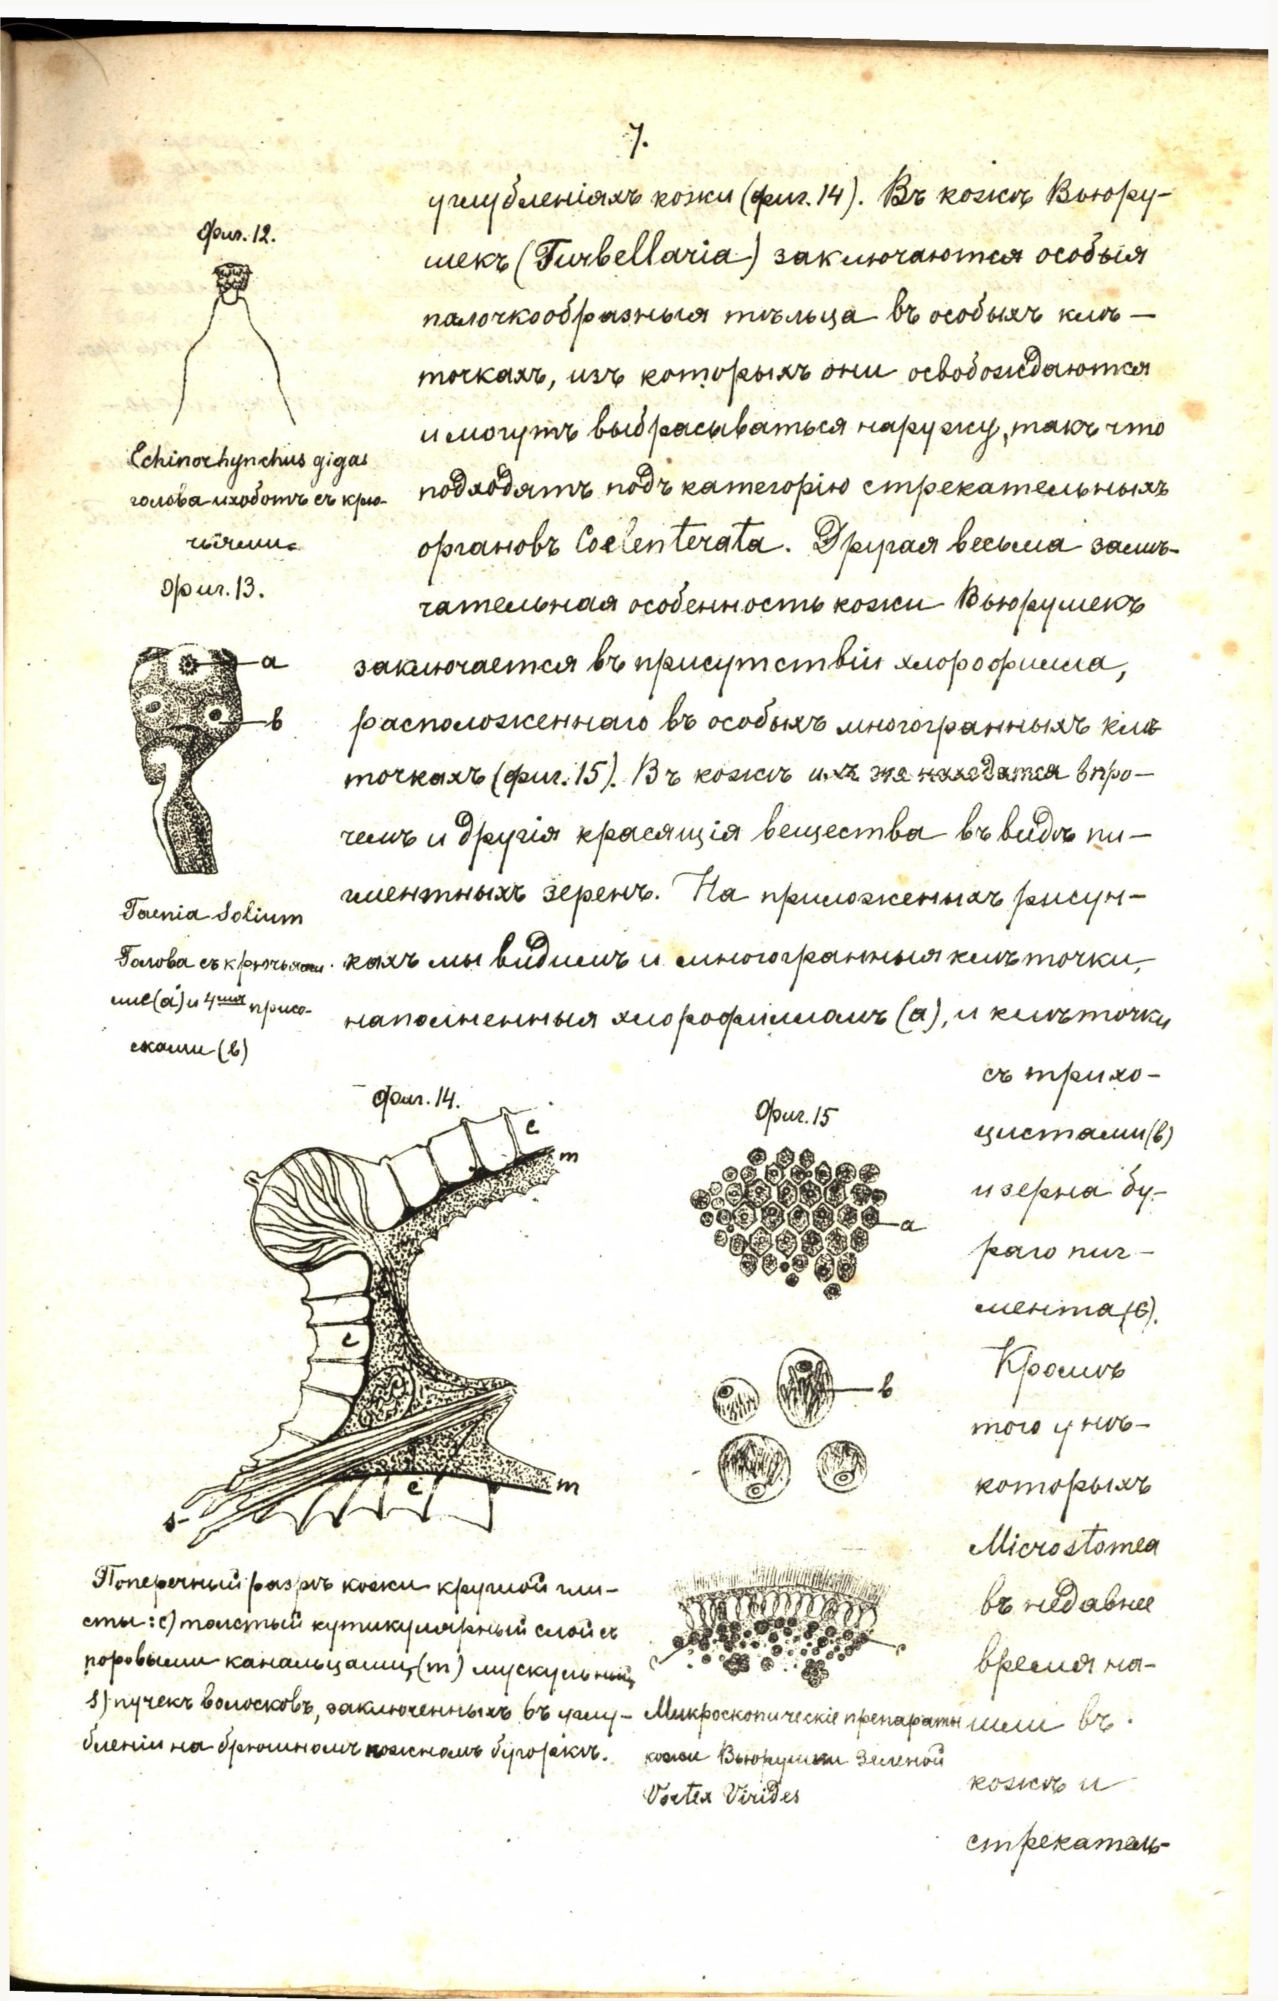 7.
углубленіяхъ кожи (фиг. 14). Въ кожѣ Вьюру-
шекъ (Turbellaria) заключаются особыя
палочкообразныя тѣльца въ особыхъ клѣ-
точкахъ, изъ которыхъ они освобождаются
и могутъ выбрасываться наружу, такъ что
подходятъ подъ категорію стрекательныхъ
органовъ Coelenterata. Другая весьма замѣ-
чательная особенность кожи Вьюрушекъ
заключается въ присутствіи хлорофилла,
расположеннаго въ особыхъ многогранныхъ клѣ
точкахъ (фиг. 15). Въ кожѣ ихъ же находятся впро-
чемъ и другія красящія вещества въ видѣ пи-
гментныхъ зеренъ. На приложенныхъ рисун-
кахъ мы видимъ и многогранныя клѣточки,
наполненныя хлорофилломъ (а), и клѣточки
съ трихо-
цистами (в)
и зерна бу-
раго пиг-
мента (с).
Кромѣ
того у нѣ-
которыхъ
Microstomea
въ недавнее
время на-
шли въ
кожѣ и
стрекатель-
Фиг. 12.
Echinorhynchus gigas
голова-хоботъ съ крю-
чьями.
Фиг. 13.
а
в
Taenia Solium
Голова съ крючьями
(а) и 4мя присо-
сками (в)
Фиг. 14.
c
m
c
c
m
s
Поперечный разрѣ кожи круглой гли-
сты: c) толстый кутикулярный слой съ
поровыми канальцами, (m) мускульный
s) пучекъ волосковъ, заключенныхъ въ углу-
бленіи на брюшномъ кожномъ бугоркѣ.
Фиг. 15
а
в
с
Микроскопическіе препараты
кожи Вьюрушки зеленой
Vortex Virides